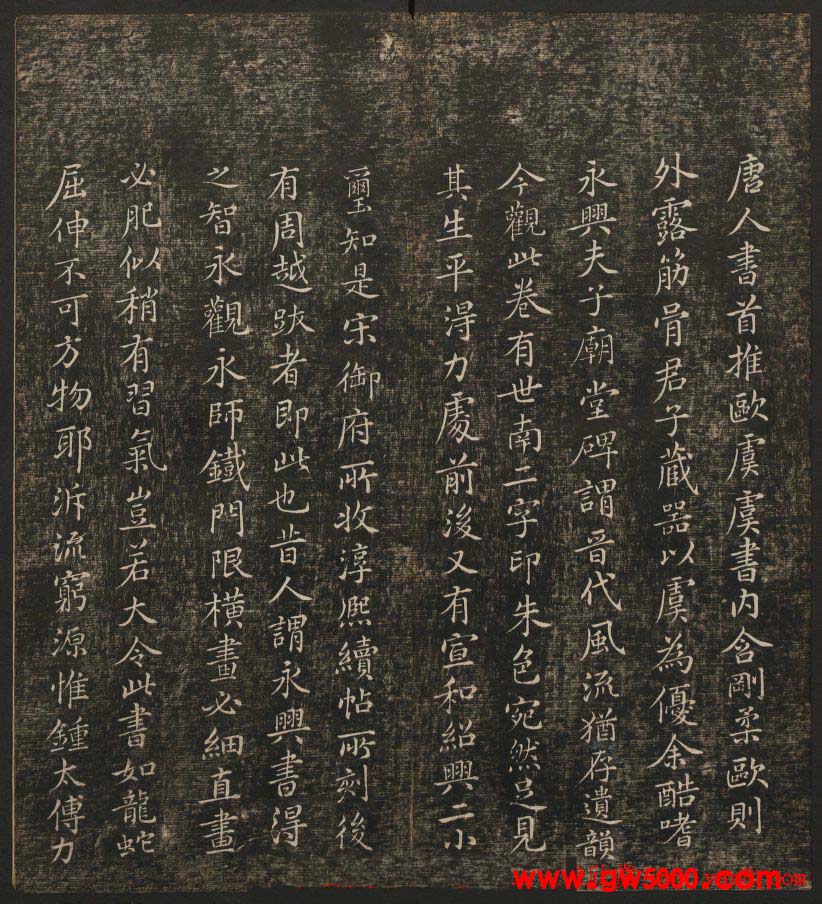 唐人書首推歐虞虞書内含剛柔歐則
外露筋骨君子藏器以虞為優余酷嗜
永興夫子廟堂碑謂晋代風流猶存遺韻
今觀此卷有世南二字印朱色宛然足見
其生平得力處前後又有宣和紹興二小
璽知是宋御府所收淳熈續帖所刻後
有周越跋者即此也昔人謂永興書得
之智永觀永師鐵門限橫畫必細直畫
必肥似稍有習氣豈若大令此書如龍蛇
屈伸不可方物耶泝流窮源惟鍾太傅力
www.gw5000.com